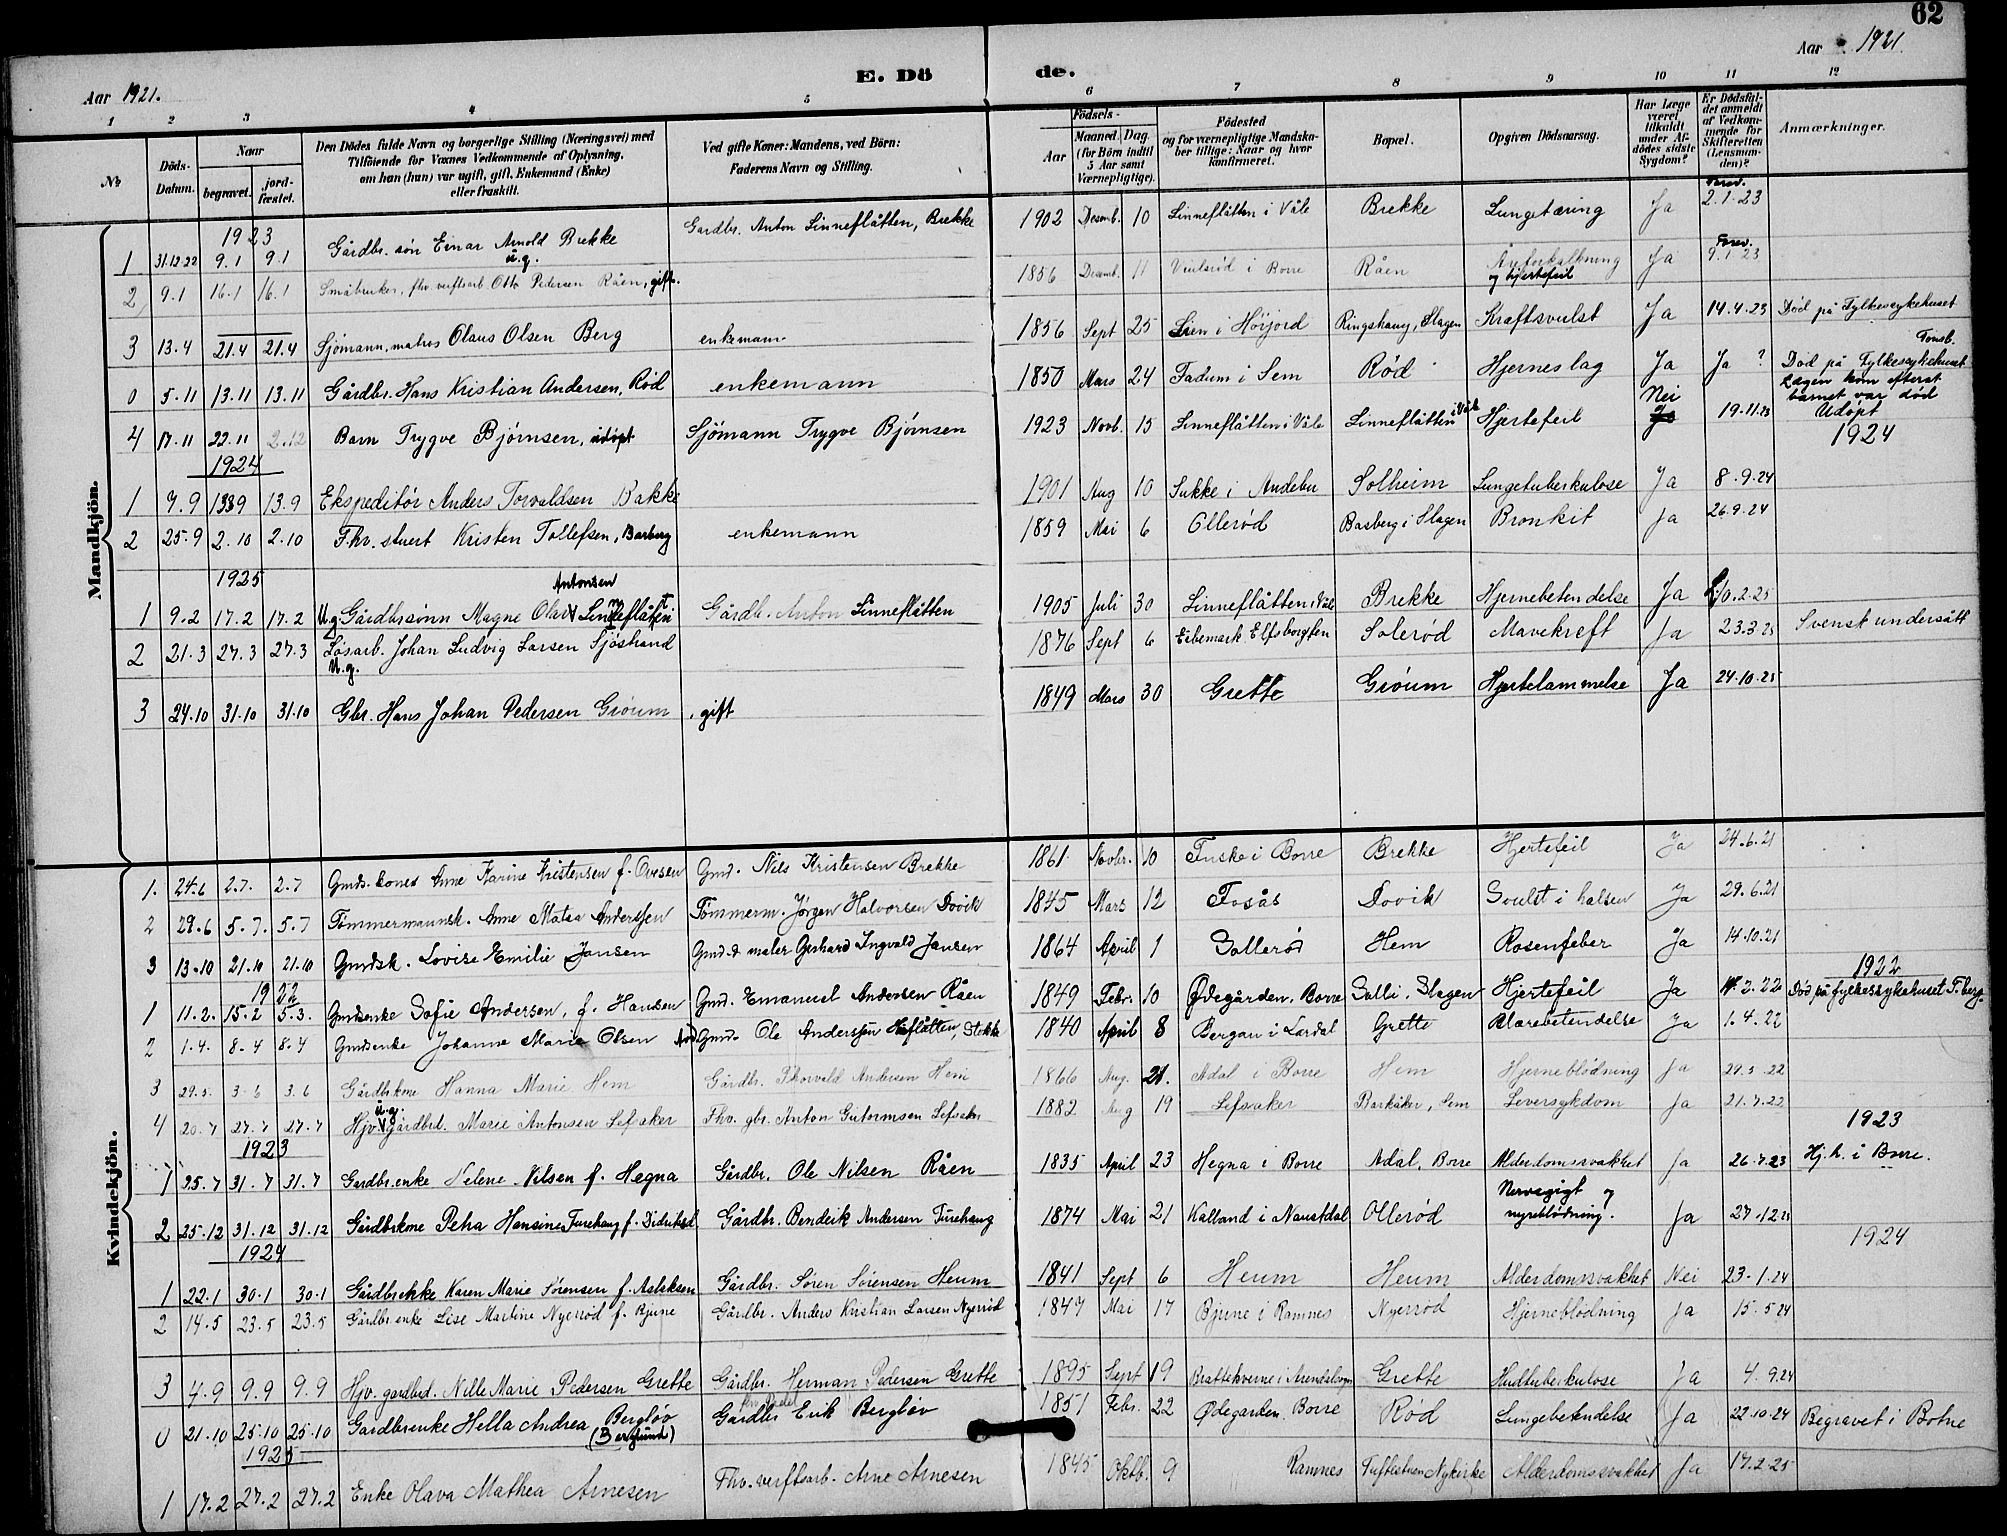 62
Aar 1921.
E. Dö
de.
Aar 1921
1 2 3 4 5 6 7 8 9 10 11 12
No
Döds-Datum.
Naar
begravet.
jord-fæstet.
Den Dödes fulde Navn og borgerlige Stilling (Næringsvei) med
Tilföiende for Voxnes Vedkommende af Oplysning,
om han (hun) var ugift, gift, Enkemand (Enke)
eller fraskilt.
Ved gifte Koner: Mandens, ved Börn:
Faderens Navn og Stilling.
Födsels-
Aar
Maaned. Dag.
(for Börn indtil
5 Aar samt
Værnepligtige).
Födested
og for værnepligtige Mandska-
ber tillige: Naar og hvor
konfirmeret.
Bopæl.
Opgiven Dödsaarsag.
Har Læge
været
tilkaldt
under Af-
dödes sidste
Sygdom?
Er Dödsfal-
det anmeldt
af Vedkom-
mende for
Skifteretten
(Lensman-
den)?
Anmærkninger.
Mandkjön.
1923
1 31.12.22 9.1 9.1 Gårdbr. søn Einar Arnold Brekke u.g. Gardbr. Anton Linneflåtten, Brekke 1902 Desemb. 10 Linneflåtten i Våle Brekke Lungetæring Ja 2.1.23
2 9.1 16.1 16.1 Småbruker, fhv. verftsarb. Otto Pedersen Råen, gift. 1856 Desemb. 11 i Borre Råen Åreforkalkning og hjertefeil Ja 9.1.23
3 13.4 21.4 21.4 Sjömann, matros Olaus Olsen Berg enkemann 1856 Sept 25 Lien i Ringshaug, Slagen Kræftsvulst Ja 14.4.23 Död på Fylkessykehuset Tønsb.
0 5.11 13.11 13.11 Gårdbr. Hans Kristian Andersen, Rød enkemann 1850 Mars 24 Fadum i Sem Rød Hjerneslag Ja Ja ? Död på Fylkessykehuset
4 17.11 22.11 2.12 Barn Trygve Bjørnsen, udøpt Sjömann Trygve Bjørnsen 1923 Novb. 15 Linneflåtten i Våle Linneflåtten i Våle Hjertefeil Nei 19.11.23 Lægen kom efterat barnet var död Udøpt
1924 1924
1 7.9 13.9 13.9 Ekspeditör Anders Torvaldsen Bakke 1901 Aug 10 Sukke i Andebu Solheim Lungetuberkulose Ja 8.9.24
2 25.9 2.10 2.10 Fhv. stuert Kristen Tollefsen, Basberg enkemann 1859 Mai 6 Ollerød Basberg i Slagen Bronkit Ja 26.9.24
1925
1 9.2 17.2 17.2 U.g. Gårdbrsønn Magne Olav Antonsen Linneflåtten Gårdb. Anton Linneflåtten 1905 Juli 30 Linneflåtten i Våle Brekke Hjernebetendelse Ja 10.2.25
2 21.3 27.3 27.3 Løsarb. Johan Ludvig Larsen Sjöstrand U.g. 1876 Sept 6 Solerød Mavekreft Ja 23.3.25 Svensk undersått
3 24.10 31.10 31.10 Gbr. Hans Johan Pedersen Gröum, gift 1849 Mars 30 Grette Gröum Hjertelammelse Ja 24.10.25
Kvindekjön.
1. 24.6 2.7. 2.7 Gmds. kone Anne Karine Kristensen f. Ovesen Gmd. Nils Kristensen Brekke 1861 Novbr. 10 Fuske i Borre Brekke Hjertefeil Ja 24.6.21
2 29.6 5.7. 5.7 Tömmermannsk. Anne Matea Anderssen Tömmerm. Jörgen Halvorsen Dovik 1845 Mars 12 Fosås Dovik Svulst i halsen Ja 29.6.21
3 13.10 21.10 21.10 Gmdsk. Lovise Emilie Jansen Gmd. & maler Gerhard Ingvald Jansen 1864 April 1 Sollerød Hem Rosenfeber Ja 14.10.21
1922 1922
1 11.2. 15.2 5.3. Gmdsenke Sofie Andersen, f. Hansen Gmd. Emanuel Andersen Råen 1849 Febr. 10 Ødegården, Borre Solli, Slagen Hjertefeil Ja 2.22 Död på fylkessykehuset T.berg
2 1.4. 8.4 8.4 Gmdsenke Johanne Marie Olsen Gmd. Ole Anderssen 1840 April 8 Bergan i Lardal Grette Blærebetendelse Ja 1.4.22
3 29.5. 3.6 3.6 Gårdbrkone Hanna Marie Hem Gårdbr. Thorvald Andersen Hem 1866 Aug. 21. Adal i Borre Hem Hjerneblödning Ja 29.5.22
4 20.7 27.7 27.7 Hjv. u.g. gårdbrd. Marie Antonsen Lefsaker Fhv. gbr. Anton Gutormsen Lefsaker 1882 Aug 19 Lefsaker Barkåker, Sem Leversykdom Ja 21.7.22
1923 1923
1 25.7 31.7 31.7 Gardbr.enke Nilsen f. Hegna Gårdbr. Ole Nilsen Råen 1835 April 23 Hegna i Borre Adal, Borre Alderdomssvakhet Ja 26.7.23 Hj.h. i Borre.
2 25.12 31.12 31.12 Gårdbrkone Petra Hansine Furehaug f. Didriksd. Gårdbr. Bendrik Andersen Furehaug 1874 Mai 21 Kalland i Naustdal Ollerød Nervegigt og nyreblödning. Ja 27.12.23
1924 1924
1 22.1 30.1 30.1 Gårdbrenke Karen Marie Sörensen f. Aslaksen Gårdbr. Sören Sörensen Heum 1841 Sept 6 Heum Heum Alderdomssvakhet Nei 23.1.24
2 14.5 23.5 23.5 Gårdbr enke Lise Martine Nyerrød f. Bjune Gårdbr. Anders Kristian Larsen Nyerrød 1847 Mai 17 Bjune i Ramnes Nyerrød Hjerneblödning Ja 15.5.24
3 4.9 9.9 9.9 Hjv. gardbrd. Nille Marie Pedersen Grette Gårdbr. Herman Pedersen Grette 1895 Sept 19 Grette Hudtuberkulose Ja 4.9.24
0 21.10 25.10 25.10 Gårdbrenke Hella Andrea Bergløv (Berglund) Gårdbr Erik Bergløv 1851 Febr. 22 Ødegården Borre Rød Lungebetendelse Ja 22.10.24 Begravet i Botne
1925
1 17.2 27.2 27.2 Enke Olava Mathea Arnesen Fhv. verftsarb. Arne Arnesen 1845 Oktb. 9 Ramnes Nykirke Alderdomssvakhet Ja 17.2.25